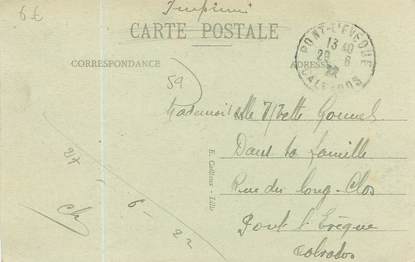 6£
Imprimé
CARTE POSTALE
CORRESPONDANCE
ADRESSE
PONT-L'EVEQUE
13 40
29 6
22
CALVADOS
59
Mademoiselle Yvette
Dans sa famille
Rue du Long-Clos
Pont l'Evêque
Calvados
27 - 6 - 22
E. Cailteux - Lille